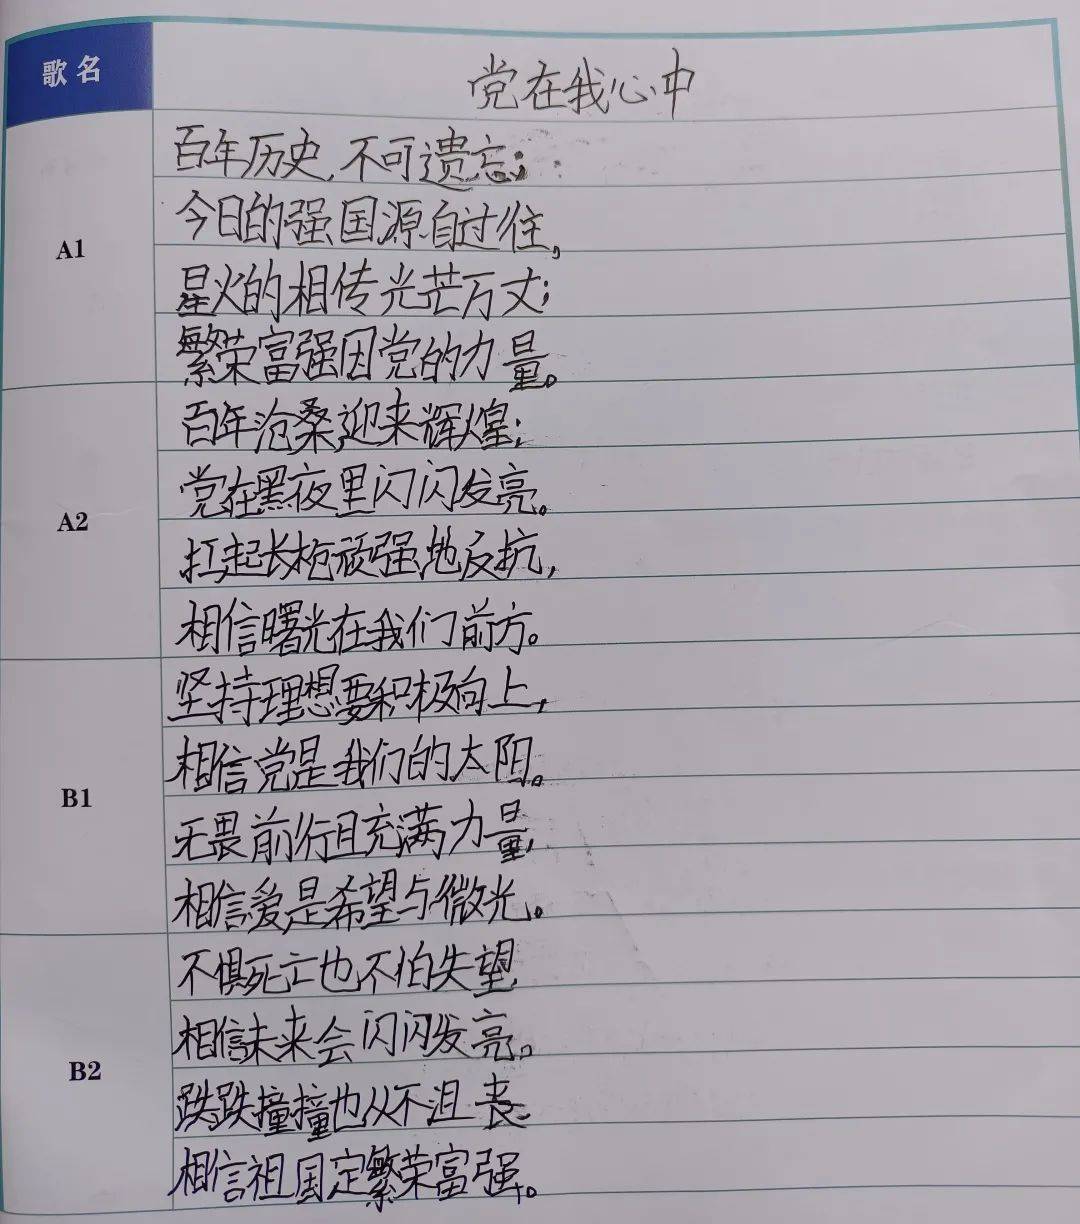 歌名
党在我心中
A1
百年历史,不可遗忘;
今日的强国源自过往,
星火的相传光芒万丈;
繁荣富强因党的力量。
A2
百年沧桑,迎来辉煌;
党在黑夜里闪闪发亮。
扛起长枪顽强地反抗,
相信曙光在我们前方。
B1
坚持理想要积极向上,
相信党是我们的太阳。
无畏前行且充满力量,
相信爱是希望与微光。
B2
不惧死亡也不怕失望,
相信未来会闪闪发亮。
跌跌撞撞也从不沮丧,
相信祖国定繁荣富强。